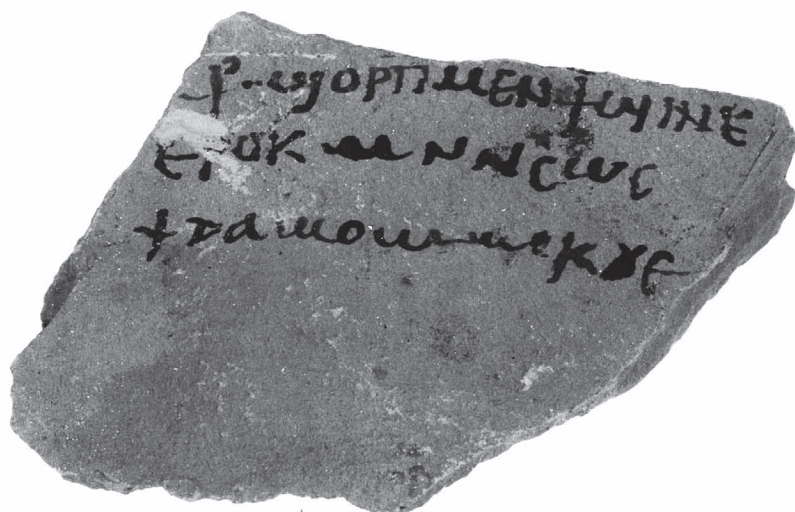 ⳨ ϣⲟⲣⲡ ⲙⲉⲛ ϯϣⲓⲛⲉ
ⲉⲣⲟⲕ ⲙⲛⲛⲥⲱⲥ
ϯⲧⲁⲙⲟ ⲙⲙⲟⲕ ϫⲉ